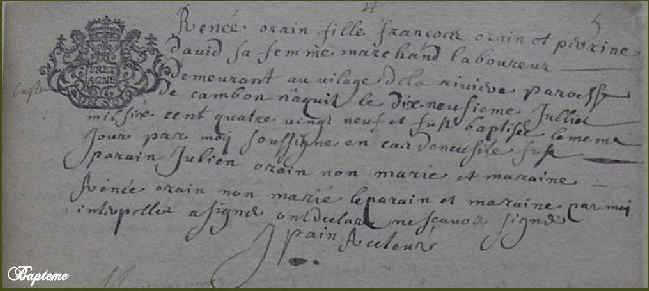 Renée orain fille francois orain et perine
David sa femme marchand laboureur
Demeurant au vilage de la riviere paroesse
de cambon naquit le dixneufieme Jullier
mil six cent quatre vingt neuf et fust baptisée le meme
Jour par moy soussigne en cas de necessité fust
parain Julien orain non marié et maraine
Rénée orain non marié le parain et maraine par moi
interpellez a signe ont declaré ne scavoir signer
Recteur
BRET
AGNE
Bapteme